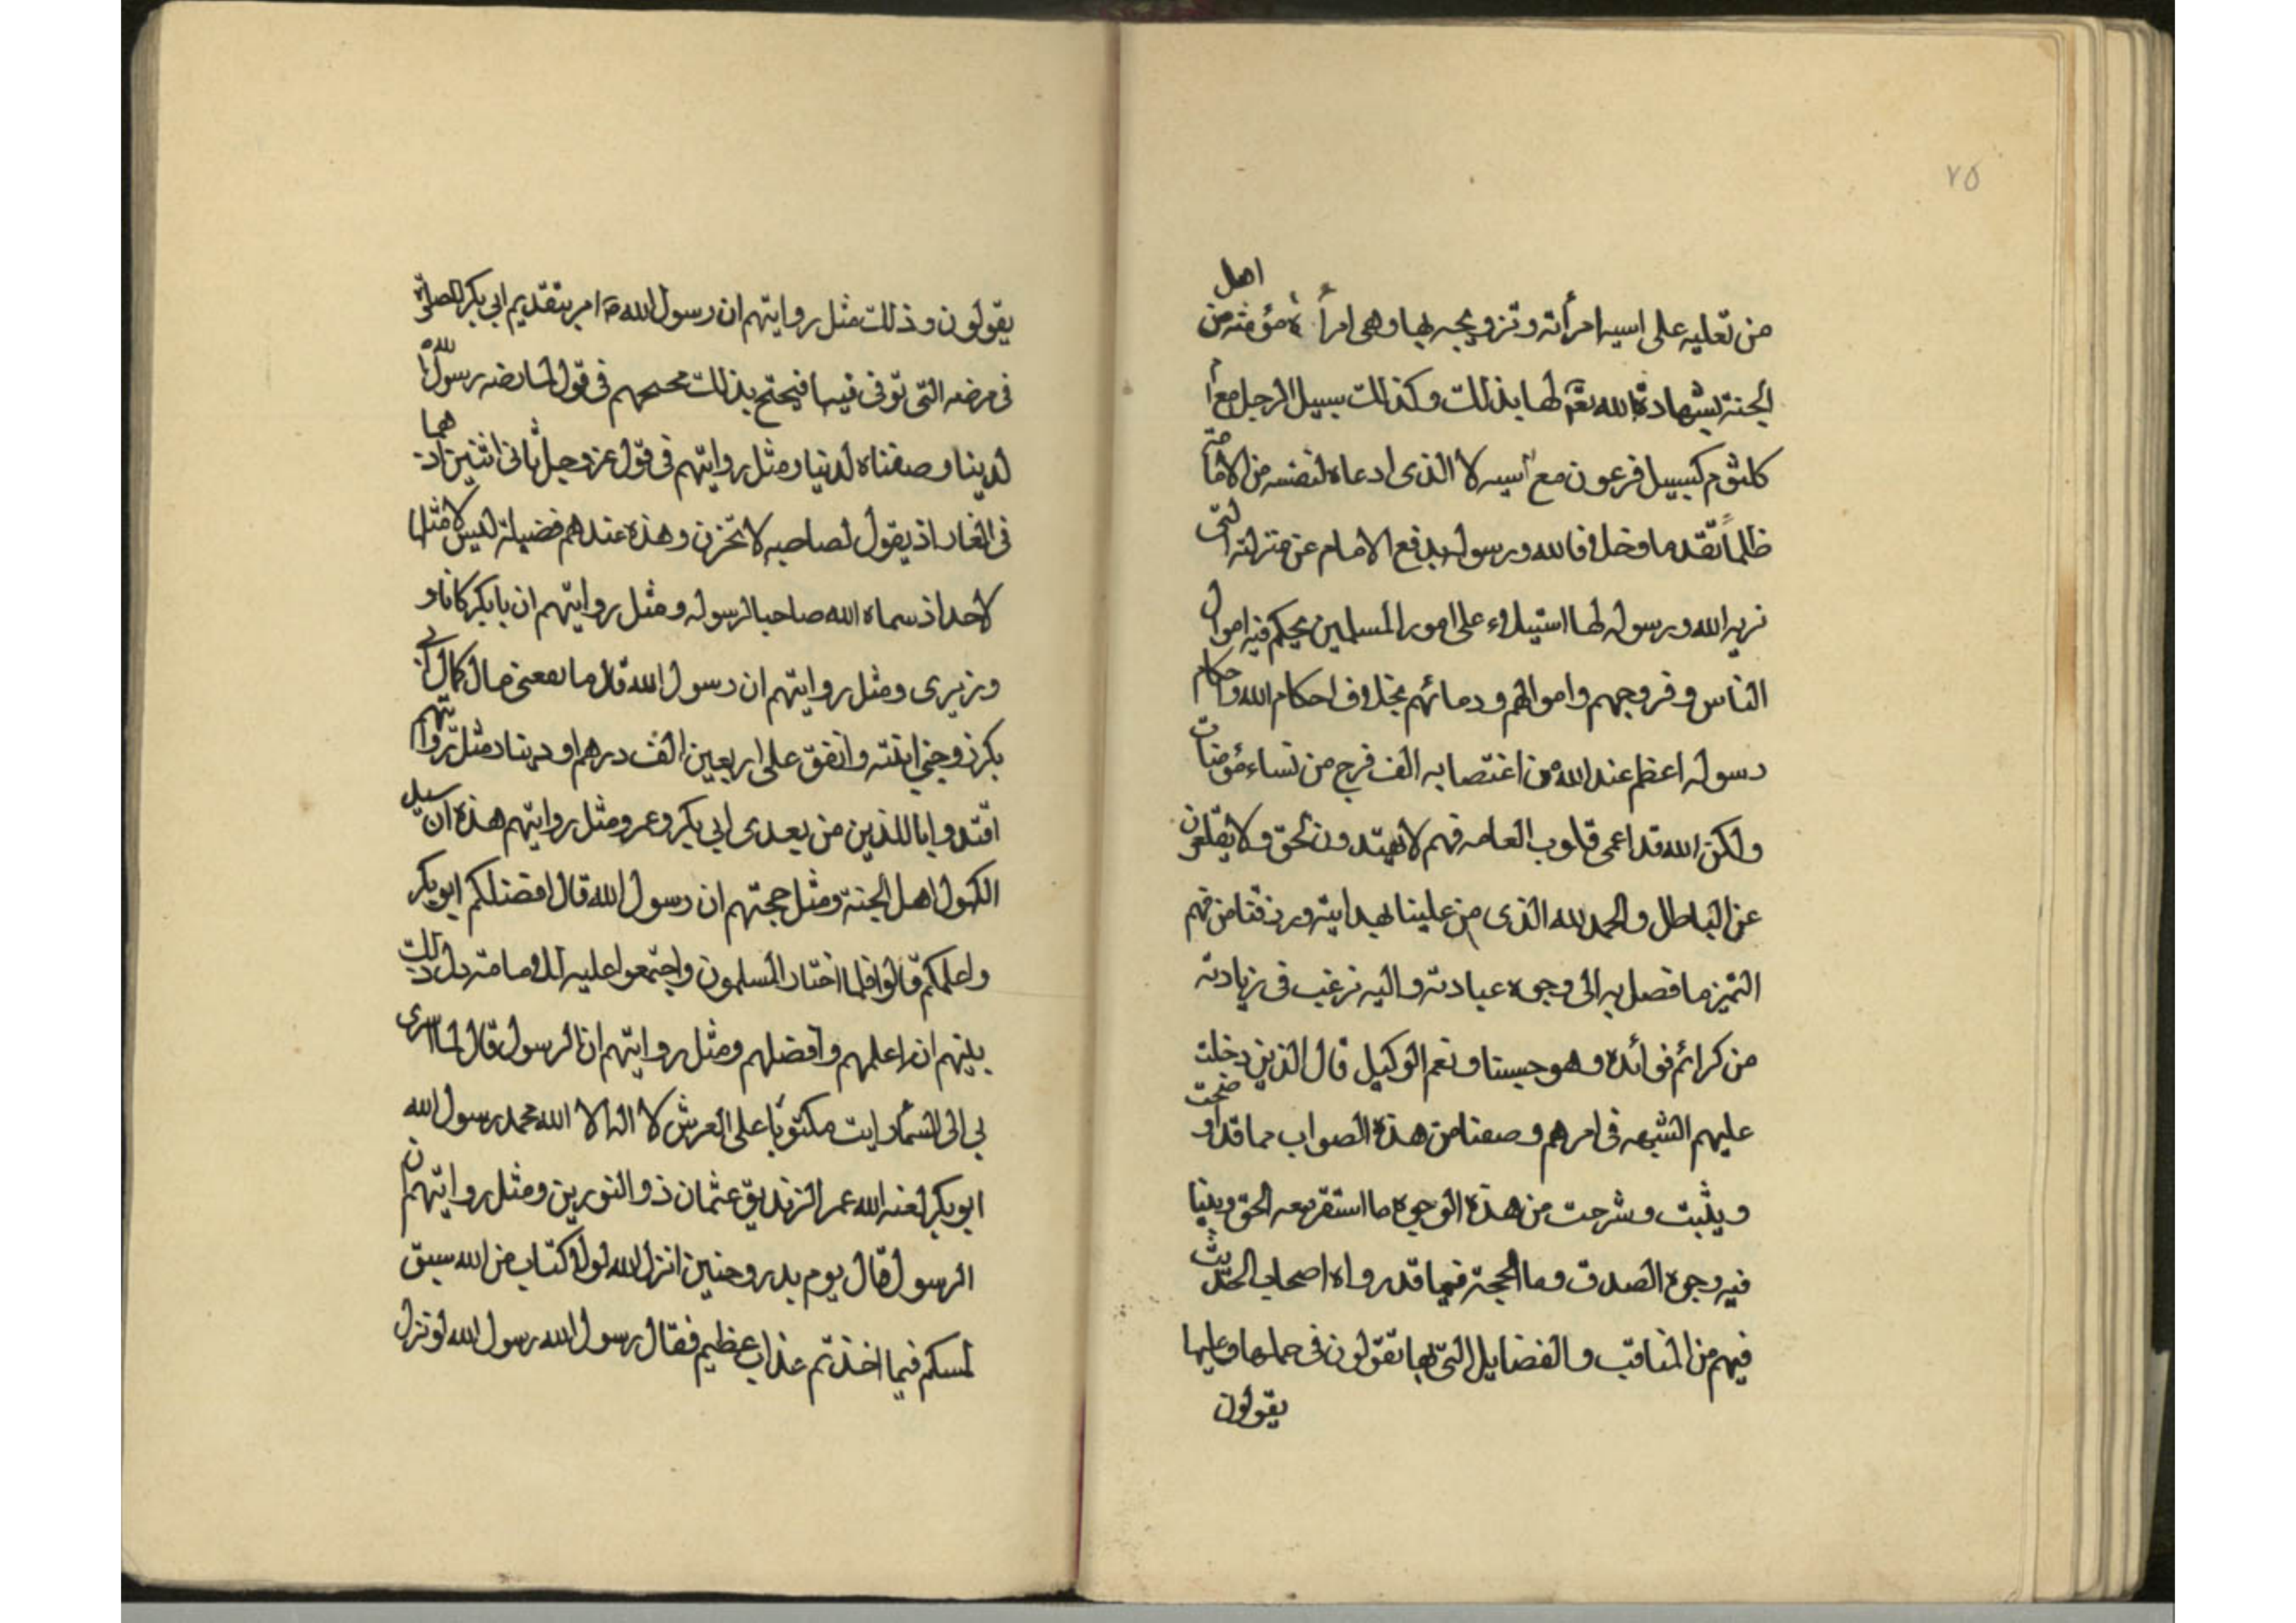 ٧٥
من تعليه على اسيه امرأته وتزويجه بها وهى امرأة مؤمنه من اهل
الجنة بشهادة الله تعم لها بذلك وكذلك سبيل الرجل مع ا
كلثوم كسبيل فرعون مع آسيه لا الذى ادعاه لنفسه من الامامة
ظلماً تقدما وخلافا لله ورسوله بدفع الامام عن منزلته التى
نربه الله ورسوله لها استيلاء على امور المسلمين يحكم فيه اموال
الناس وفروجهم واموالهم ودمائهم بخلاف احكام الله واحكام
رسوله اعظم عند الله من اغتصابه الف فرج من نساء مؤمنات
ولكن الله قد اعمى قلوب العامه فهم لا يهتدون لحق ولا يقلعون
عن الباطل والحمد لله الذى من علينا بهدايته ورزقنا من فهم
التميز ما فصل به الى وجوه عبادته واليه نرغب فى زيادته
من كرائم فوائده وهو حسبنا ونعم الوكيل قال الذين دخلت
عليهم الشبهه فى امرهم وصفنا من هذه الصواب مما قد اوضحت
ويثبت وشرحت من هذه الوجوه ما استقر معه الحق وبينا
فيه وجوه الصدق وما الحجة فيما قد رواه اصحاب الحديث
فيهم من المناقب والفضايل التى بها تقولون فى حملها وعليها
يقولون
يقولون وذلك مثل روايتهم ان رسول الله ص امر بتقديم ابى بكر للصلوة
فى مرضه التى توفى فيها فيحتج بذلك محتجهم فى قول لما رضه رسول الله
لديننا وصفناه لدنيا ومثل روايتهم فى قول عز وجل ثانى اثنين اذ هما
فى الغار اذ يقول لصاحبه لا تحزن وهذه عندهم فضيلة ليس لا مثلها
لاحد اذ سماه الله صاحبا لرسوله ومثل روايتهم ان بابكر كانا و
وزيرى ومثل روايتهم ان رسول الله قال ما نفعنى مال كمال ابى
بكر زوجنى ابنته وانفق على اربعين الف درهم او دينار مثل روايتهم
اقتدوا باللذين من بعدى ابى بكر وعمر ومثل روايتهم هذه ان سيد
الكهول اهل الجنة ومثل حجتهم ان رسول الله قال افضلكم ابوبكر
واعلمكم قالوا فلما اختار المسلمون واجتمعوا عليه لك وما منه دل ذلك
بينهم ان اعلمهم وافضلهم ومثل روايتهم ان الرسول قال لما اسرى
بى الى السماء رايت مكتوبا على العرش لا اله الا الله محمد رسول الله
ابوبكر لعنه الله عمر الزنديق عثمان ذو النورين ومثل روايتهم ان
الرسول قال يوم بدر وحنين انزل الله لولا كتاب من الله سبق
لمسكم فيما اخذتم عذاب عظيم فقال رسول الله رسول الله لو نزل